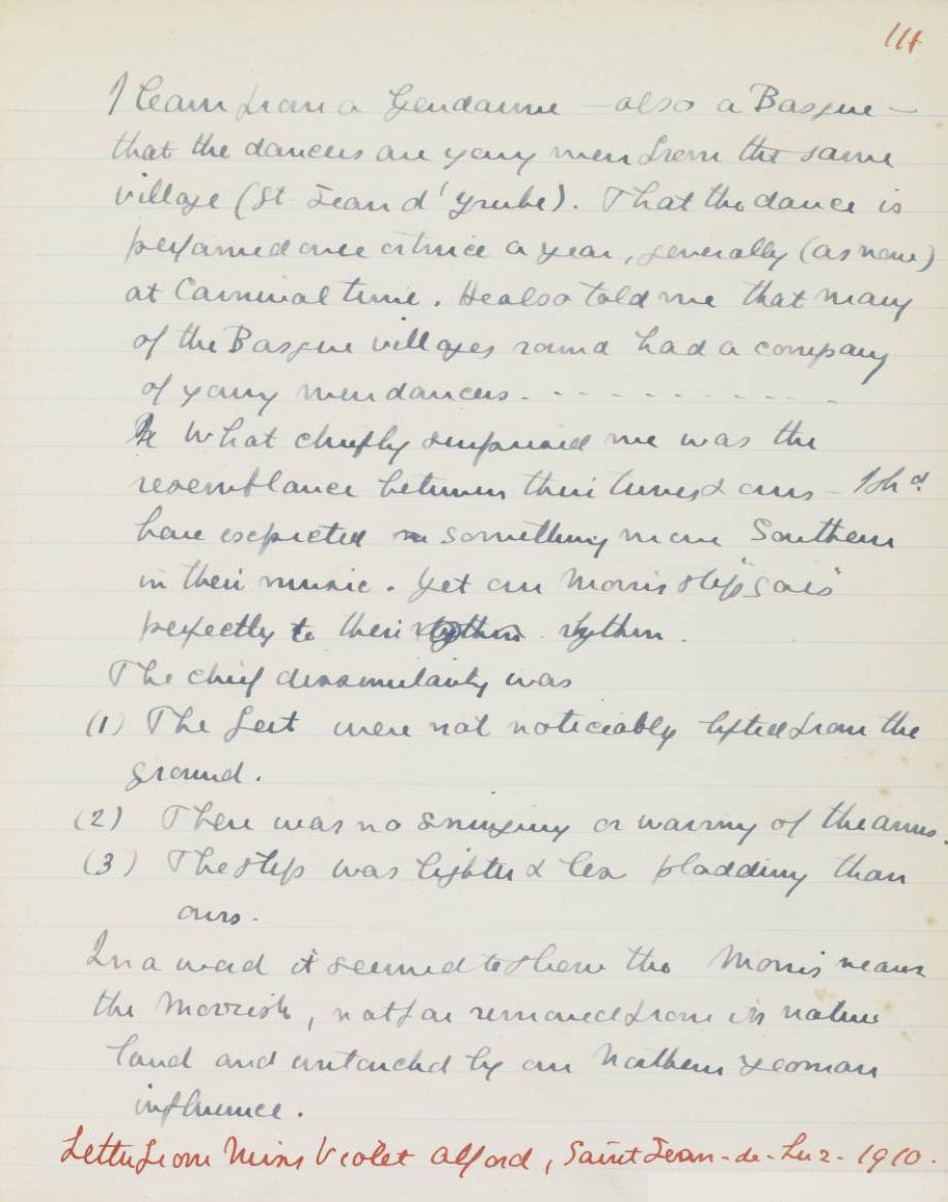 111
I learn from a Gendarme – also a Basque –
that the dancers are young men from the same
village (St Jean d'Yrube). That the dance is
performed once or twice a year, generally (as now)
at Carnival time. He also told me that many
of the Basque villages round had a company
of young men dancers. - - - - - - - - - - -
What chiefly surprised me was the
resemblance between their tunes & ours – I shd
have expected something more Southern
in their music. Yet our Morris step "goes"
perfectly to their rhythm.
The chief dissimilarity was
(1) The feet were not noticeably lifted from the
ground.
(2) There was no swinging or waving of the arms.
(3) The step was lighter & less plodding than
ours.
In a word it seemed to show the Morris nearer
the Moorish, not far removed from its native
land and untouched by our Northern yeoman
influence.
Letter from Miss Violet Alford, Saint Jean-de-Luz - 1910.